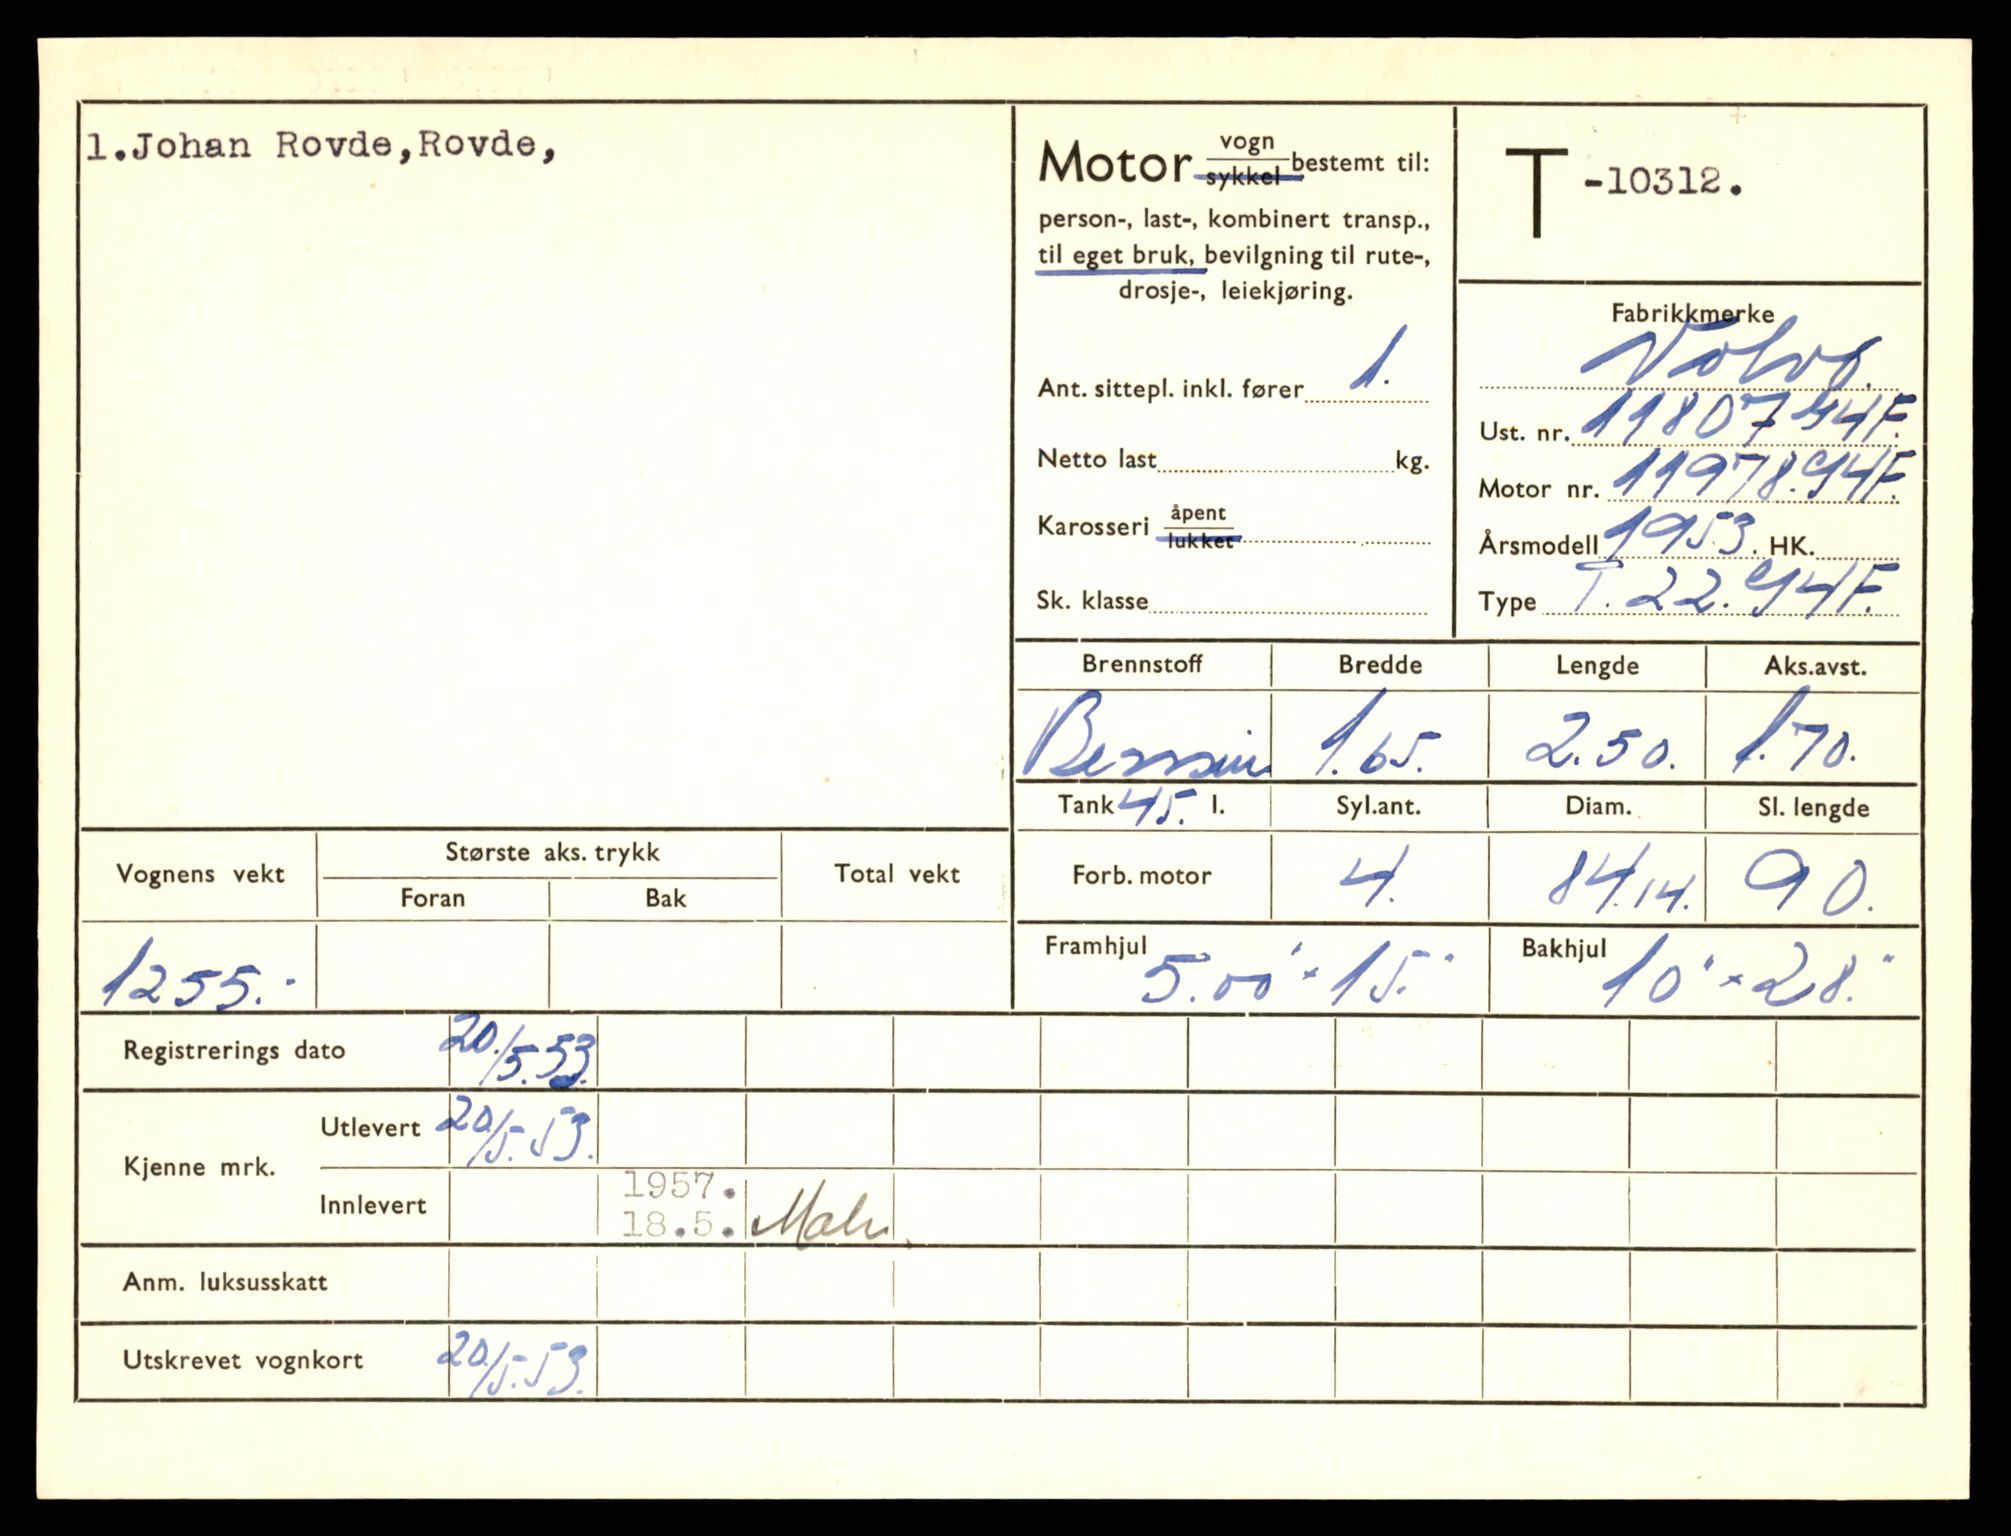 1.Johan Rovde,Rovde,
Motor vogn sykkel bestemt til:
person-, last-, kombinert transp.,
til eget bruk, bevilgning til rute-,
drosje-, leiekjøring.
Ant. sittepl. inkl. fører 1.
Netto last kg.
Karosseri åpent lukket
Sk. klasse
T -10312.
Fabrikkmerke
Volvo.
Ust. nr. 11807
Motor nr. 11978.
Årsmodell 1953. HK.
Type T. 22.
Brennstoff Bredde Lengde Aks.avst.
Bensin 1.65. 2.50. 1.70.
Tank 45. l. Syl.ant. Diam. Sl. lengde
Forb. motor 4. 84.14. 90.
Framhjul 5.00" × 15." Bakhjul 10" × 28."
Vognens vekt Største aks. trykk Total vekt
Foran Bak
1255.-
Registrerings dato 20./5.53.
Kjenne mrk. Utlevert 20./5.53.
Innlevert 1957.
18.5.
Anm. luksusskatt
Utskrevet vognkort 20./5.53.